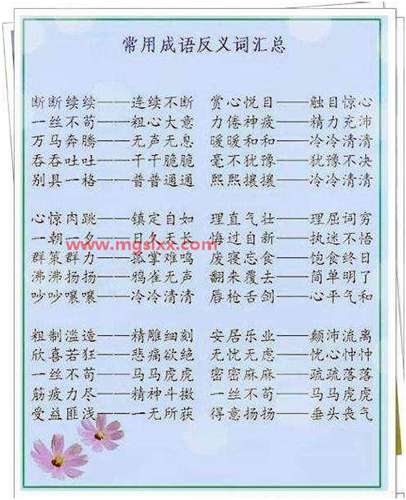 常用成语反义词汇总
断断续续——连续不断 赏心悦目——触目惊心
一丝不苟——粗心大意 力倦神疲——精力充沛
万马奔腾——无声无息 暖暖和和——冷冷清清
吞吞吐吐——干干脆脆 毫不犹豫——犹豫不决
别具一格——普普通通 熙熙攘攘——冷冷清清
心惊肉跳——镇定自如 理直气壮——理屈词穷
一朝一夕——日久天长 悔过自新——执迷不悟
群策群力——孤掌难鸣 废寝忘食——饱食终日
沸沸扬扬——鸦雀无声 翻来覆去——简单明了
吵吵嚷嚷——冷冷清清 唇枪舌剑——心平气和
粗制滥造——精雕细刻 安居乐业——颠沛流离
欣喜若狂——悲痛欲绝 无忧无虑——忧心忡忡
一丝不苟——马马虎虎 密密麻麻——疏疏落落
筋疲力尽——精神斗擞 一丝不苟——马马虎虎
受益匪浅——一无所获 得意扬扬——垂头丧气